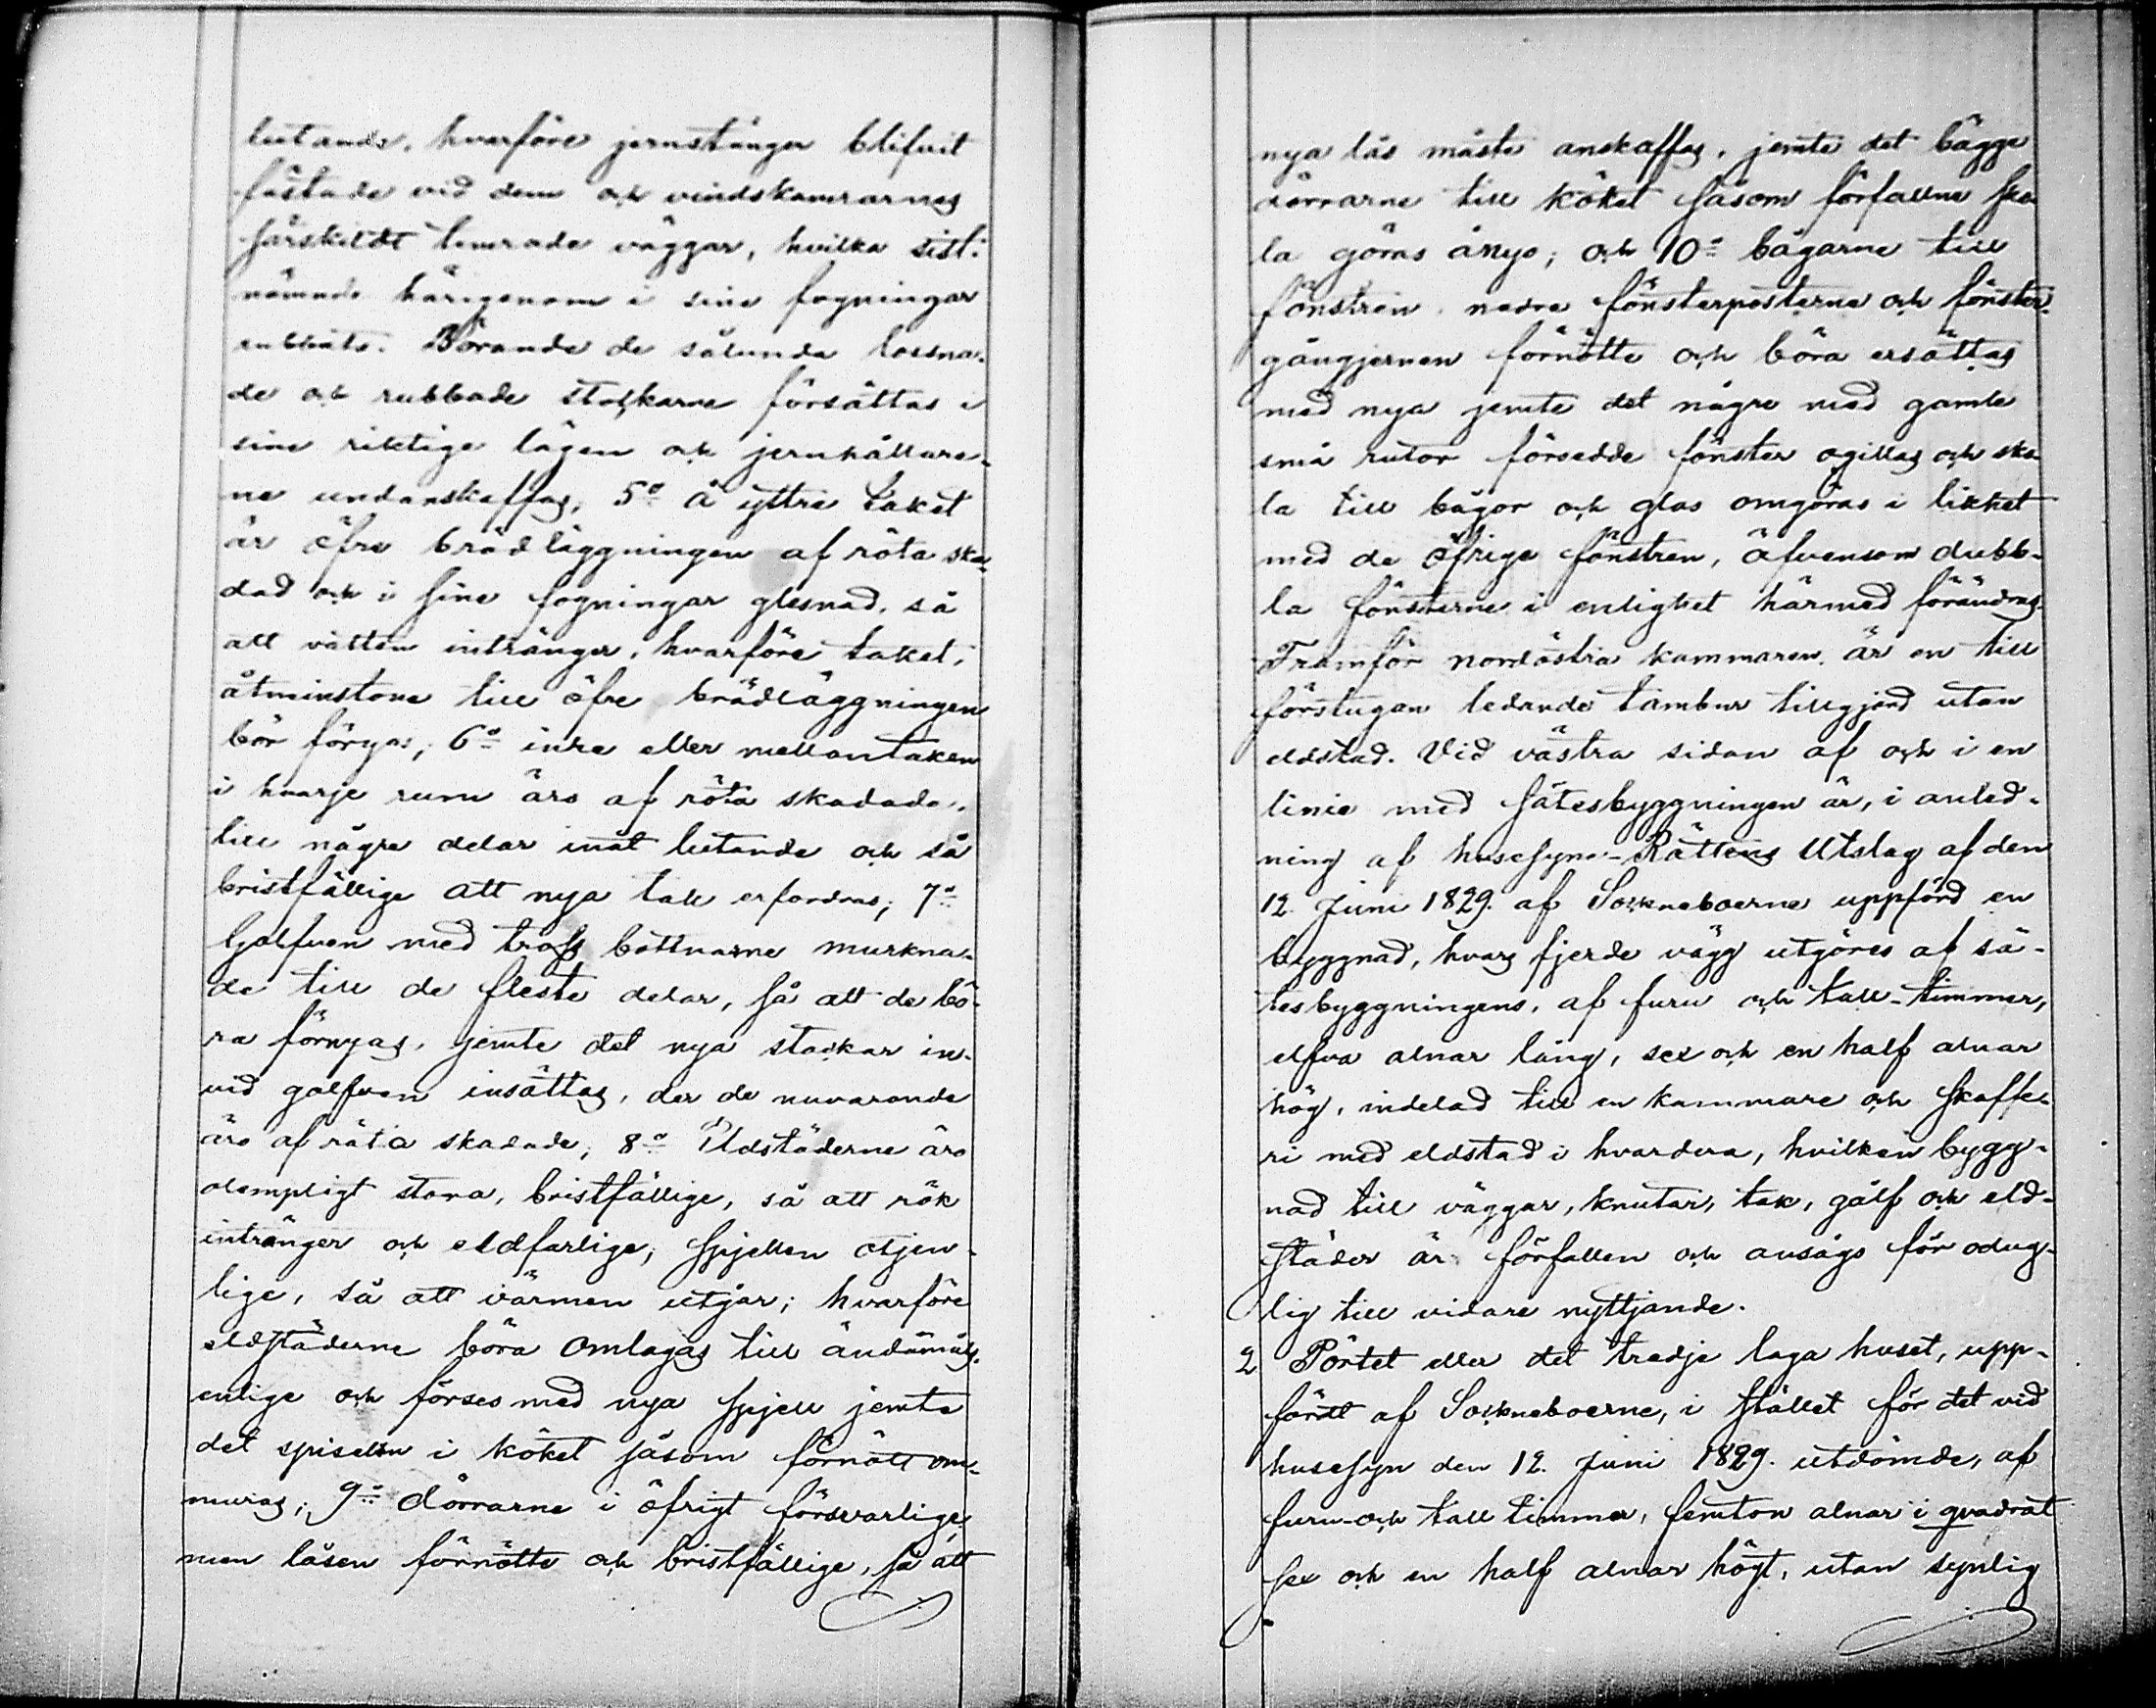 lutande, hvarföre jernstänger blifvit
fästade vid dem och vindskamrarnes
särskildt timrade väggar, hvilka sist-
nämnde härigenom i sine fogningar
rubbats. Börande de sålunda lossna-
de och rubbade stockarne försättas i
sine riktige lägen och jernhållare-
ne undanskaffas, 5:o å yttre taket
är öfre brädläggningen af röta ska-
dad och i sine fogningar glesnad, så
att vatten intränger, hvarföre taket,
åtminstone till öfre brädläggningen
bör förnyas, 6:o inre eller mellantaken
i hvarje rum äro af röta skadade,
till några delar inåt lutande och så
bristfällige att nya tak erfordras; 7:o
Golfven med trossbottnarne murkna-
de till de fleste delar, så att de bö-
ra förnyas, jemte det nya stockar in-
vid golfven insättas, der de nuvarande
äro af röta skadade; 8:o Eldstäderne äro
olämpligt stora, bristfällige, så att rök
intränger och eldfarlige, spjellen otjen-
lige, så att värmen utgår; hvarföre
eldstäderne böra omlagas till ändamåls-
enlige och förses med nya spjell jemte
det spiseln i köket såsom förnött om-
muras; 9:o dörrarne i öfrigt försvarlige,
men låsen förnötte och bristfällige, så att
nya lås måste anskaffas, jemte det bägge
dörrarne till köket såsom förfallne sko-
la göras ånyo; och 10:o bågarne till
fönstren, nedre fönsterposterne och fönster-
gångjernen förnötte och böra ersättas
med nya jemte det några med gamle
små rutor försedde fönster ogillas och sko-
la till bågor och glas omgöras i likhet
med de öfrige fönstren, äfvensom dubb-
la fönsterne i enlighet härmed förändras.
Framför nordöstra kammaren är en till
förstugan ledande tambur tillgjord utan
eldstad. Vid västra sidan af och i en
linie med sätesbyggningen är, i anled-
ning af husesyns-Rättens Utslag af den
12. Juni 1829. af Sockneboerne uppförd en
byggnad, hvars fjerde vägg utgöres af sä-
tesbyggningens, af furu och tall-timmer,
elfva alnar lång, sex och en half alnar
hög, indelad till en kammare och skaffe-
ri med eldstad i hvardera, hvilken bygg-
nad till väggar, knutar, tak, golf och eld-
städer är förfallen och ansågs för odug-
lig till vidare nyttjande.
2 Pörtet eller det tredje laga huset, upp-
fördt af Sockneboerne, i stället för det vid
husesyn den 12. Juni 1829. utdömde, af
furu- och tall timmer, femton alnar i qvadrat
sex och en half alnar högt, utan synlig